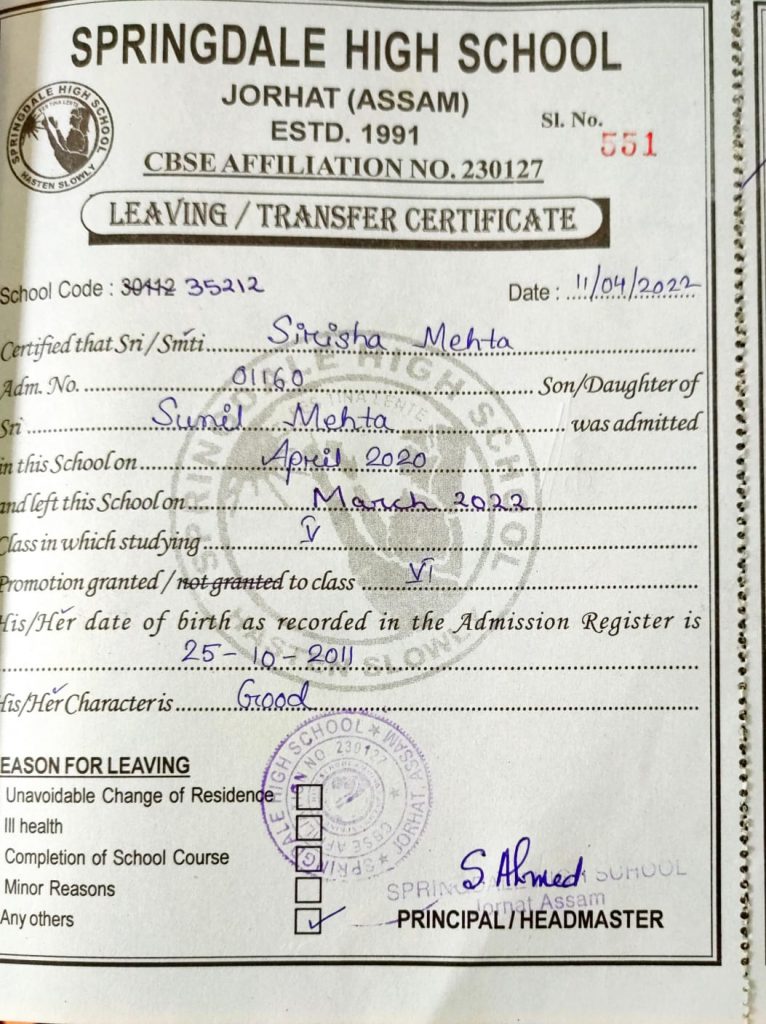 SPRINGDALE HIGH SCHOOL
JORHAT (ASSAM)
ESTD. 1991
Sl. No. 551
CBSE AFFILIATION NO. 230127
SPRINGDALE HIGH SCHOOL
HASTEN SLOWLY
LEAVING / TRANSFER CERTIFICATE
School Code : 30112 35212
Date : 11/04/2022
Certified that Sri / Smti Sirisha Mehta
Adm. No. 01160 Son/Daughter of
Sri Sunil Mehta was admitted
in this School on April 2020
and left this School on March 2022
Class in which studying V
Promotion granted / not granted to class VI
His/Her date of birth as recorded in the Admission Register is
25-10-2011
His/Her Character is Good
EASON FOR LEAVING
Unavoidable Change of Residence
Ill health
Completion of School Course
Minor Reasons
Any others
SPRINGDALE HIGH SCHOOL
JORHAT, ASSAM
CBSE AFFILIATION NO 230127
S Ahmed
SPRINGDALE HIGH SCHOOL
Jorhat Assam
PRINCIPAL / HEADMASTER
SPRINGDALE HIGH SCHOOL
HASTEN SLOWLY